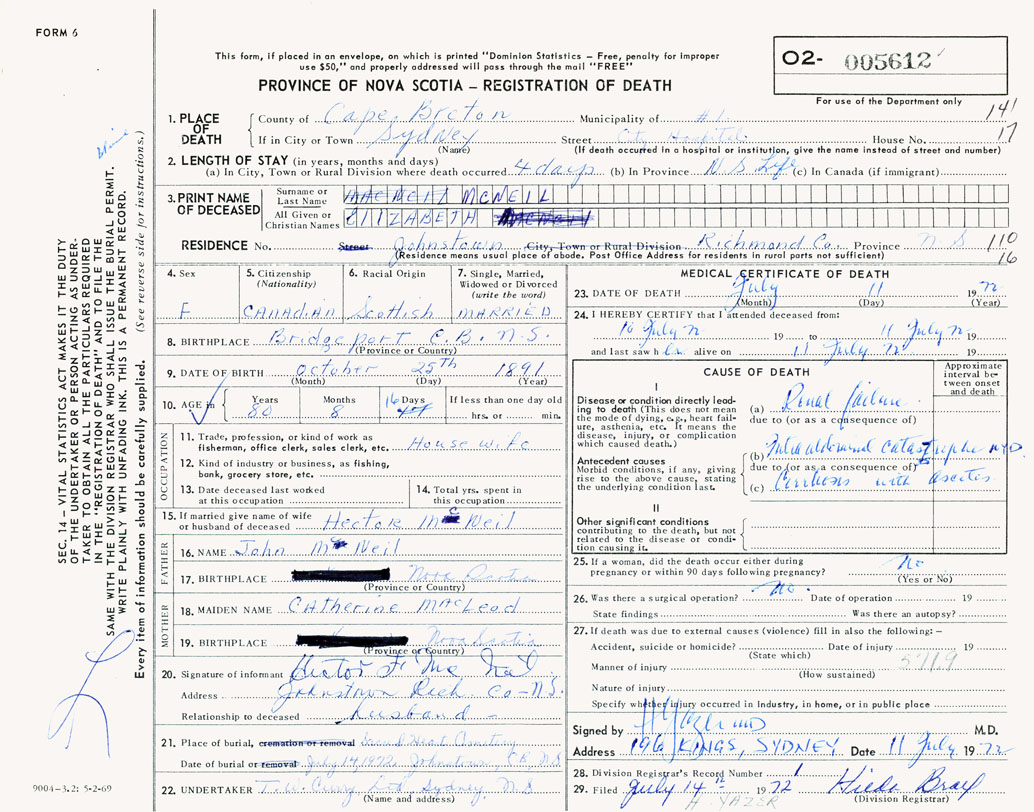 FORM 6
This form, if placed in an envelope, on which is printed "Dominion Statistics – Free, penalty for improper
use $50," and properly addressed will pass through the mail "FREE"
PROVINCE OF NOVA SCOTIA – REGISTRATION OF DEATH
O2- 005612
For use of the Department only
141
17
1. PLACE OF DEATH
County of Cape Breton Municipality of #1
If in City or Town Sydney Street City Hospital House No.
(Name) (If death occurred in a hospital or institution, give the name instead of street and number)
2. LENGTH OF STAY (in years, months and days)
(a) In City, Town or Rural Division where death occurred 4 days (b) In Province N S Life (c) In Canada (if immigrant)
3. PRINT NAME OF DECEASED
Surname or Last Name MCNEIL
All Given or Christian Names ELIZABETH
RESIDENCE No. Street Johnstown City, Town or Rural Division Richmond Co. Province N S
110
16
(Residence means usual place of abode. Post Office Address for residents in rural parts not sufficient)
4. Sex
F
5. Citizenship
(Nationality)
CANADIAN
6. Racial Origin
Scottish
7. Single, Married,
Widowed or Divorced
(write the word)
MARRIED
8. BIRTHPLACE Bridgeport C.B. N.S.
(Province or Country)
9. DATE OF BIRTH October 25th 1891
(Month) (Day) (Year)
10. AGE in
Years 80
Months 8
Days 16
If less than one day old
hrs. or min.
OCCUPATION
11. Trade, profession, or kind of work as
fisherman, office clerk, sales clerk, etc. House wife
12. Kind of industry or business, as fishing,
bank, grocery store, etc.
13. Date deceased last worked
at this occupation
14. Total yrs. spent in
this occupation
15. If married give name of wife
or husband of deceased Hector McNeil
FATHER
16. NAME John McNeil
17. BIRTHPLACE Nova Scotia
(Province or Country)
MOTHER
18. MAIDEN NAME Catherine MacLeod
19. BIRTHPLACE Nova Scotia
(Province or Country)
20. Signature of informant Hector F Mc Neil
Address Johnstown Rich Co-N.S.
Relationship to deceased husband
21. Place of burial, cremation or removal Sacred Heart Cemetery
Date of burial or removal July 14 1972 Johnstown
22. UNDERTAKER T.W. Curry Ltd Sydney N.S
(Name and address)
MEDICAL CERTIFICATE OF DEATH
23. DATE OF DEATH July 11 1972
(Month) (Day) (Year)
24. I HEREBY CERTIFY that I attended deceased from:
10 July 72 19 to 11 July 72 19
and last saw h er alive on 11 July 72 19
CAUSE OF DEATH
Approximate
interval be-
tween onset
and death
I
Disease or condition directly lead-
ing to death (This does not mean
the mode of dying, e.g., heart fail-
ure, asthenia, etc. It means the
disease, injury, or complication
which caused death.)
(a) Renal failure
due to (or as a consequence of)
Antecedent causes
Morbid conditions, if any, giving
rise to the above cause, stating
the underlying condition last.
(b) Intra abdominal catastrophe NYD.
due to (or as a consequence of)
(c) Cirrhosis with ascites
II
Other significant conditions
contributing to the death, but not
related to the disease or condi-
tion causing it.
25. If a woman, did the death occur either during
pregnancy or within 90 days following pregnancy? No
(Yes or No)
26. Was there a surgical operation? No. Date of operation 19
State findings Was there an autopsy?
27. If death was due to external causes (violence) fill in also the following: –
Accident, suicide or homicide? Date of injury 19
(State which)
5719
Manner of injury
(How sustained)
Nature of injury
Specify whether injury occurred in industry, in home, or in public place
Signed by M.D.
Address 196 KINGS, SYDNEY Date 11 July 1972
28. Division Registrar's Record Number 1
29. Filed July 14th 1972 Hilda Bray
(Division Registrar)
H. YAZER
SEC. 14 – VITAL STATISTICS ACT MAKES IT THE DUTY
OF THE UNDERTAKER OR PERSON ACTING AS UNDER-
TAKER TO OBTAIN ALL THE PARTICULARS REQUIRED
IN THE "REGISTRATION OF DEATH" AND TO FILE THE
SAME WITH THE DIVISION REGISTRAR WHO SHALL ISSUE THE BURIAL PERMIT.
WRITE PLAINLY WITH UNFADING INK. THIS IS A PERMANENT RECORD.
Every item of information should be carefully supplied. (See reverse side for instructions.)
9004–3.2: 5-2-69